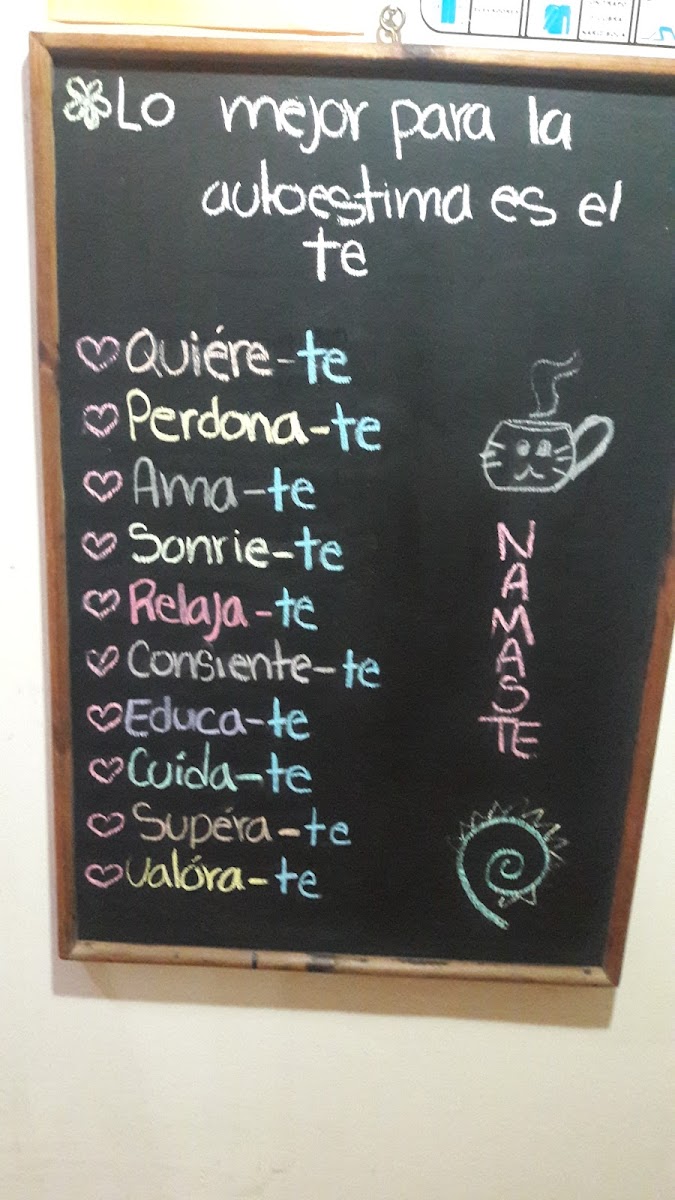 Lo mejor para la
autoestima es el
te
Quiére-te
Perdona-te
Ama-te
Sonrie-te
Relaja-te
Consiente-te
Educa-te
Cuida-te
Supéra-te
Valóra-te
NAMASTE